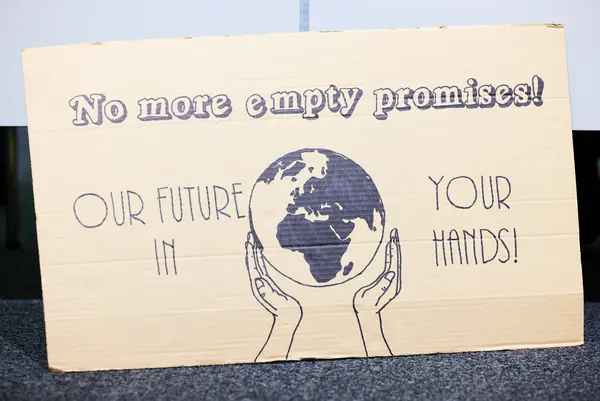 No more empty promises!
OUR FUTURE YOUR
IN HANDS!